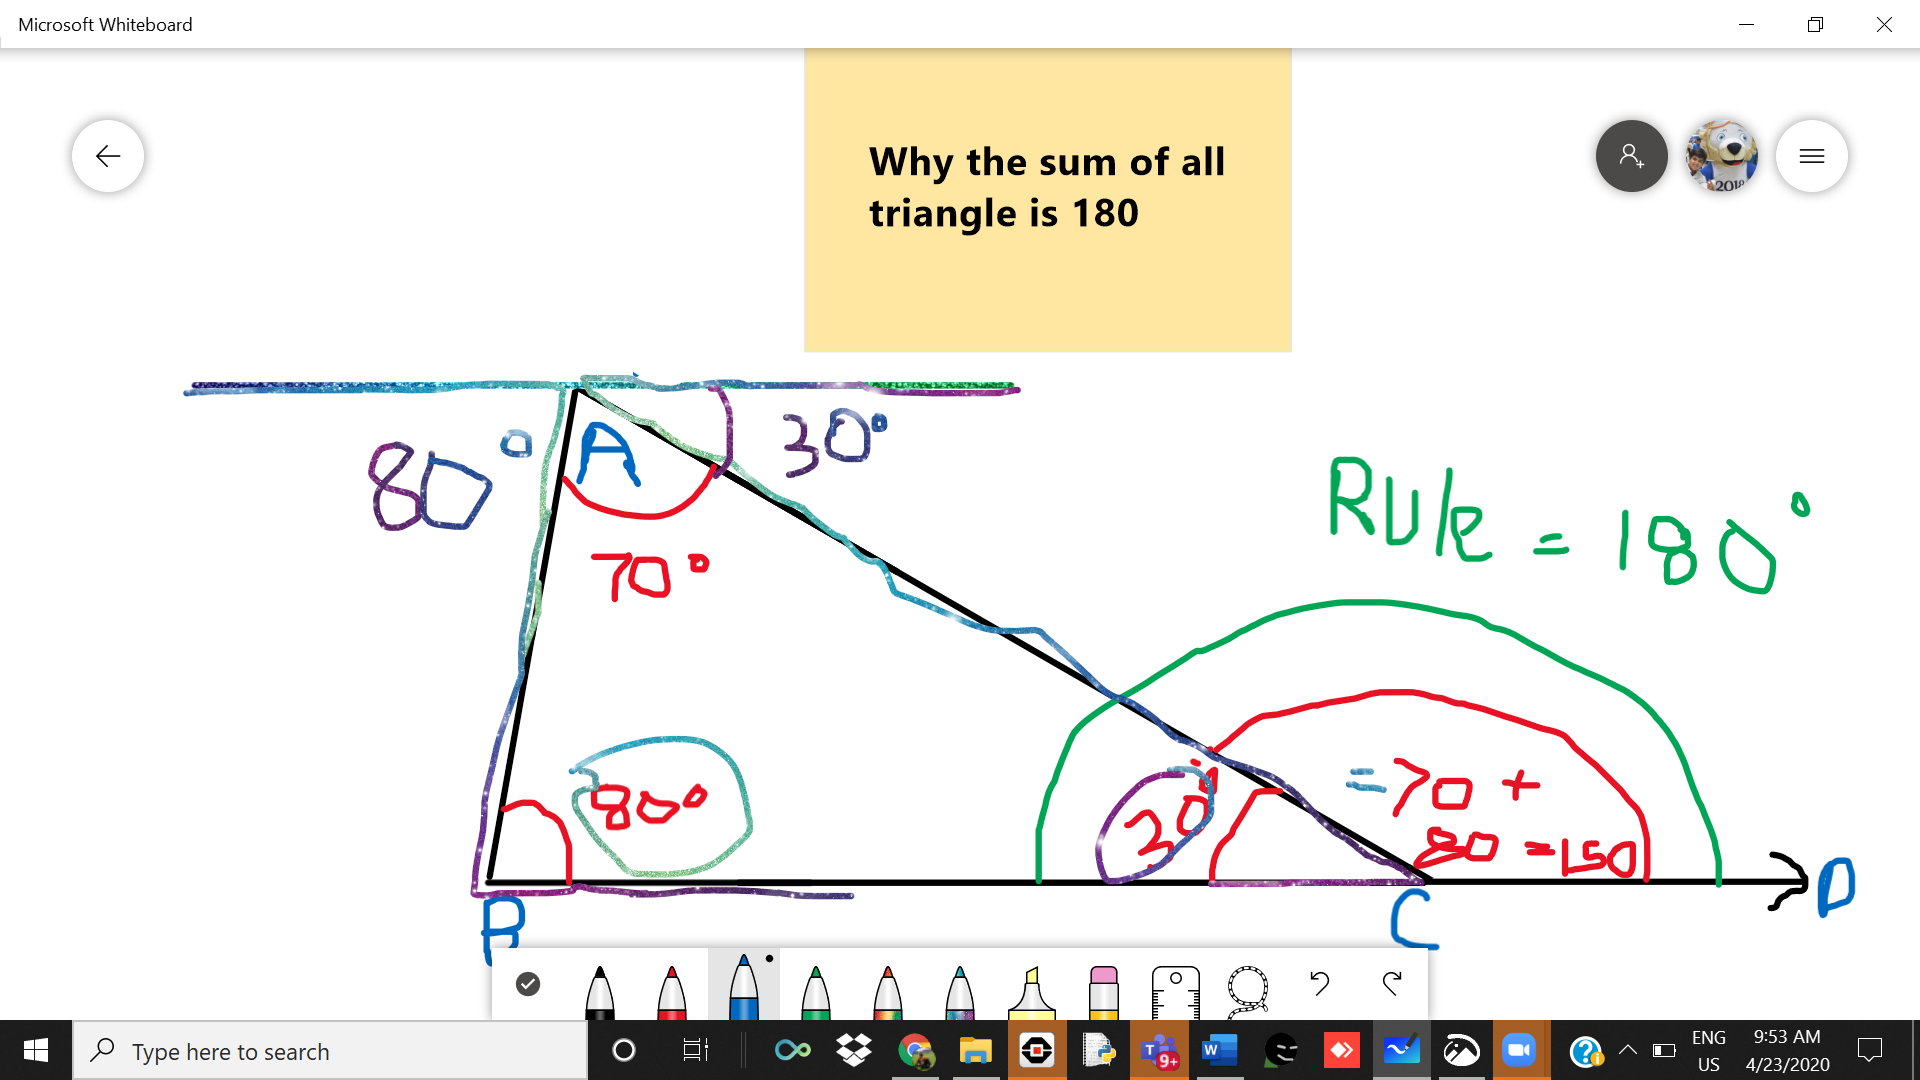 Microsoft Whiteboard
Why the sum of all
triangle is 180
2018
80°
A
30°
70°
Rule = 180°
80°
30°
=70 +
80 =150
B
C
D
Type here to search
9+
ENG
US
9:53 AM
4/23/2020